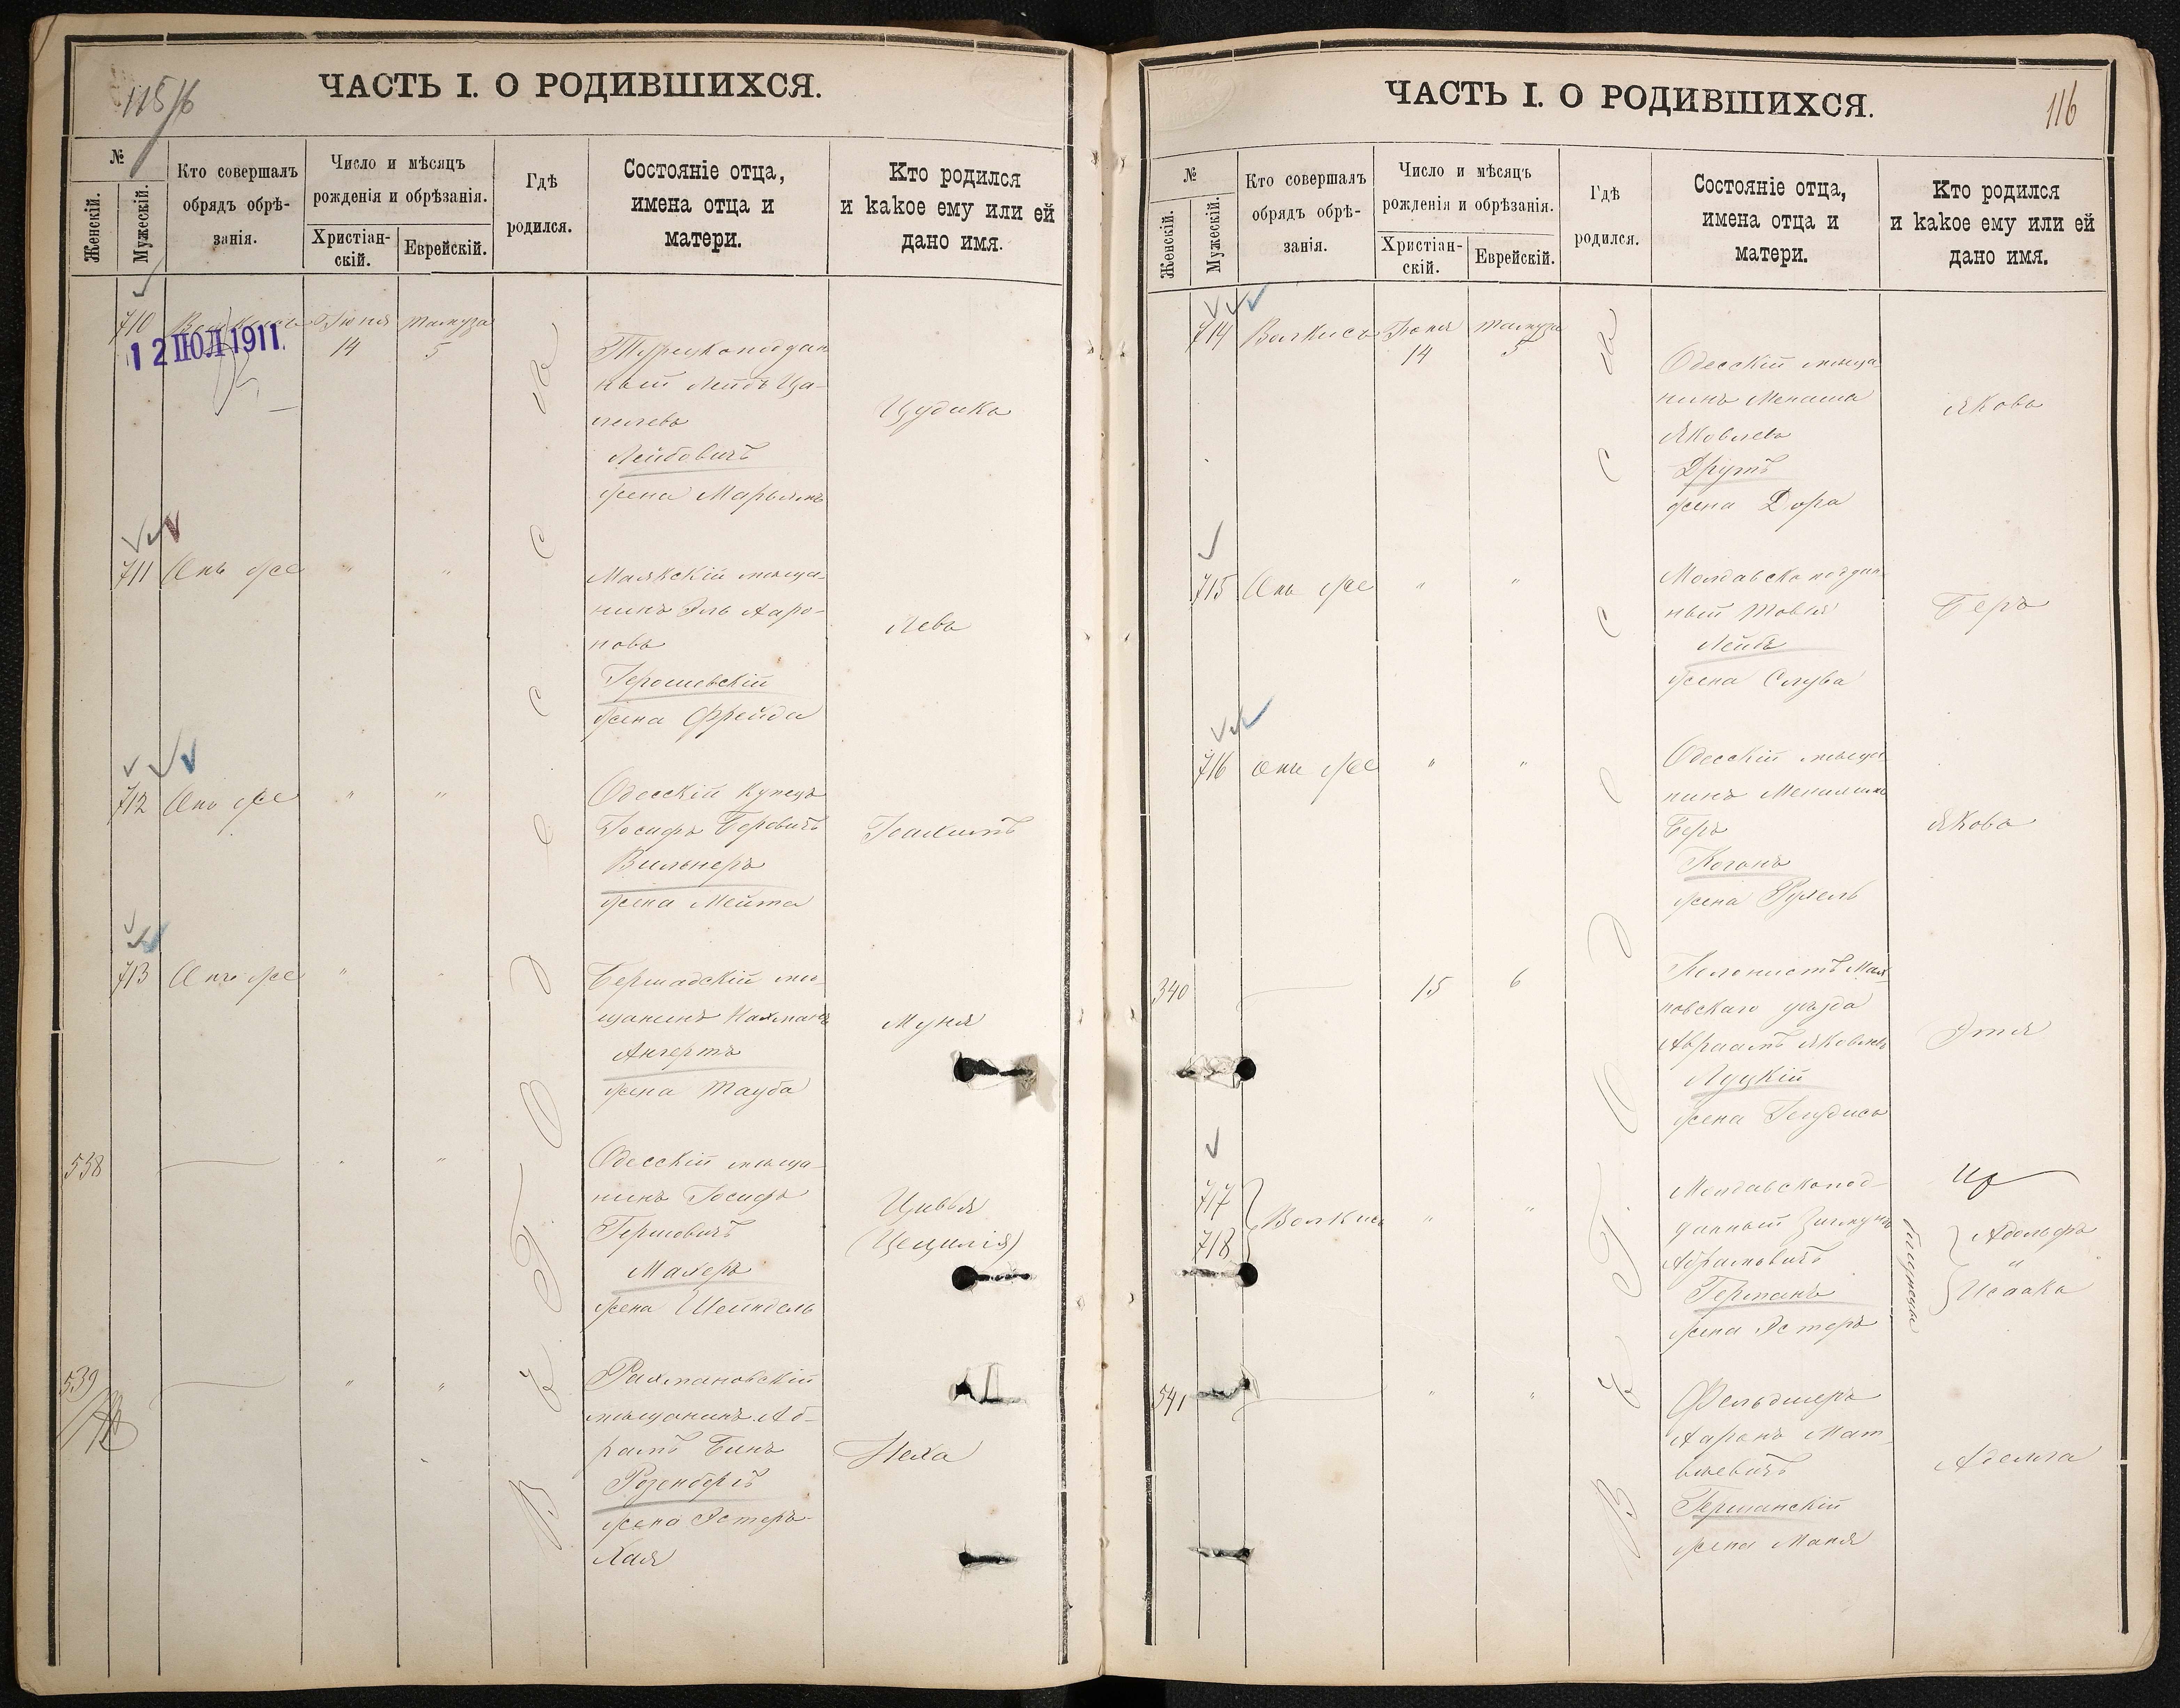 115/16
ЧАСТЬ I. О РОДИВШИХСЯ.
№
Женскій.
Мужескій.
Кто совершалъ
обрядъ обрѣ-
занія.
Число и мѣсяцъ
рожденія и обрѣзанія.
Христіан-
скій.
Еврейскій.
Гдѣ
родился.
Состояніе отца,
имена отца и
матери.
Кто родился
и какое ему или ей
дано имя.
Въ г. Одессѣ
710 Іюня Тамуза
12 ІЮЛ 1911
14 5
Турецкоподдан
ный Лейбъ
Лейбовичъ
жена Марьямъ
711 Онъ же " "
Маякскій мѣща-
нинъ ЭльАаро-
новъ
жена Фрейда
Левъ
712 Онъ же " "
Одесскій купецъ
Іосифъ Беровичъ
Вильнеръ
жена Мейта
Іоахимъ
713 Онъ же " "
Бершадскій мѣ-
щанинъ Нахманъ
Ангертъ
жена Тауба
Муня
538 " "
Одесскій мѣща-
нинъ Іосифъ
Гершовичъ
Махеръ
жена Шейндель
Цивья
(Цецилія)
539 " "
Рахмановскій
мѣщанинъ Аб-
рамъ Бинъ
Розенбергъ
жена Эстеръ-
Хая
Неха
ЧАСТЬ I. О РОДИВШИХСЯ.
116
№
Женскій.
Мужескій.
Кто совершалъ
обрядъ обрѣ-
занія.
Число и мѣсяцъ
рожденія и обрѣзанія.
Христіан-
скій.
Еврейскій.
Гдѣ
родился.
Состояніе отца,
имена отца и
матери.
Кто родился
и какое ему или ей
дано имя.
Въ г. Одессѣ
714 Волкисъ Іюня Тамуза
14 5
Одесскій мѣща
нинъ Менаша
Яковлевъ
Друтъ
жена Дора
Яковъ
715 Онъ же " "
Молдавскоподдан
ный Товія
Лейбъ
жена Слува
Беръ
716 Онъ же " "
Одесскій мѣща
нинъ
Беръ
Коганъ
жена Рухель
Яковъ
340 15 6
Колонистъ
новскаго уѣзда
Авраамъ Яковлевъ
Луцкій
жена Іегудисъ
Этя
717
718
Волкисъ " "
Молдавскопод-
данный Зигмунъ
Абрамовичъ
Германъ
жена Эстеръ
близнецы
Адольфъ
"
Исаакъ
541 " "
Фельдшеръ
Ааронъ Мат-
вѣевичъ
Германскій
жена Маня
Аделла